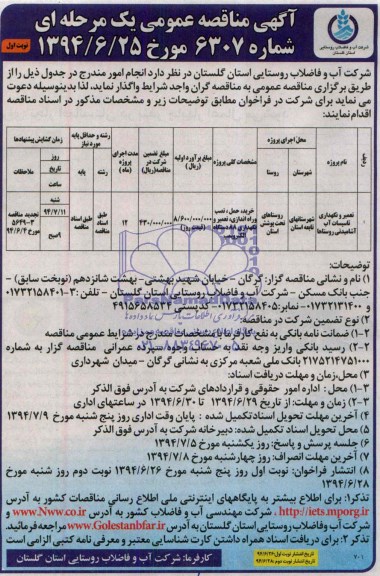 آگهی مناقصه عمومی یک مرحله ای
شماره ۶۳۰۷ مورخ ۱۳۹۴/۶/۲۵
نوبت اول
شرکت آب و فاضلاب روستایی استان گلستان
شرکت آب و فاضلاب روستایی استان گلستان در نظر دارد انجام امور مندرج در جدول ذیل را از
طریق برگزاری مناقصه عمومی به مناقصه گران واجد شرایط واگذار نماید، لذا بدینوسیله دعوت
می نماید برای شرکت در فراخوان مطابق توضیحات زیر و مشخصات مذکور در اسناد مناقصه
اقدام نمایند:
ردیف
نام پروژه
محل اجرای پروژه
شهرستان
روستا
مشخصات کلی پروژه
مبلغ برآورد اولیه (ریال)
مبلغ تضمین شرکت در مناقصه(ریال)
مدت اجرای پروژه (ماه)
رشته و حداقل پایه مورد نیاز
رشته
پایه
زمان گشایش پیشنهادها
روز
تاریخ
ساعت
ملاحظات
تعمیر و نگهداری تاسیسات آب آشامیدنی روستاها
شهرستانهای تابعه استان
روستاهای تحت پوشش
خرید، حمل ، نصب وراه اندازی، تعمیر و نگهداری ۸۸ دستگاه الکتروپمپ
۸/۶۰۰/۰۰۰/۰۰۰
۴۳۰/۰۰۰/۰۰۰
۱۲
طبق اسناد مناقصه
طبق اسناد مناقصه
شنبه
۹۴/۷/۱۱
۹صبح
تجدید مناقصه ۵۶۴۹-۳ مورخ ۹۴/۶/۴
توضیحات:
۱) نام و نشانی مناقصه گزار: گرگان - خیابان شهید بهشتی - بهشت شانزدهم (نوبخت سابق) -
جنب بانک مسکن - شرکت آب و فاضلاب روستایی استان گلستان - تلفن: ۳-۰۱۷۳۳۱۵۸۴۰۱
و ۰۱۷۳۲۱۳۱۴۰۰ - نمابر:۰۱۷۳۳۱۵۸۴۰۵ - کدپستی ۴۹۱۵۶۵۸۵۳۴
۲) نوع تضمین شرکت در مناقصه:
۱-۲) ضمانت نامه بانکی به نفع کارفرما با مشخصات مندرج در شرایط عمومی مناقصه
۲-۲) رسید بانکی واریز وجه نقد به حساب وجوه سپرده عمرانی مناقصه گزار به شماره
۲۱۷۵۲۱۴۷۵۱۰۰۰ بانک ملی شعبه مرکزی به نشانی گرگان - میدان شهرداری
۳) محل،زمان و مهلت دریافت اسناد:
۱-۳) محل: اداره امور حقوقی و قراردادهای شرکت به آدرس فوق الذکر
۲-۳) زمان و مهلت: از تاریخ ۱۳۹۴/۶/۲۹ تا ۱۳۹۴/۶/۳۰ در ساعتهای اداری
۴) آخرین مهلت تحویل اسنادتکمیل شده : پایان وقت اداری روز پنج شنبه مورخ ۱۳۹۴/۷/۹
۵) محل تحویل اسناد تکمیل شده: دبیرخانه شرکت به آدرس فوق الذکر
۶) جلسه پرسش و پاسخ: روز یکشنبه مورخ ۱۳۹۴/۷/۵
۷) آخرین مهلت انصراف: روز چهارشنبه مورخ ۱۳۹۴/۷/۸
۸) انتشار فراخوان: نوبت اول روز پنج شنبه مورخ ۱۳۹۴/۶/۲۶ نوبت دوم روز شنبه مورخ
۱۳۹۴/۶/۲۸
تذکر۱: برای اطلاع بیشتر به پایگاههای اینترنتی ملی اطلاع رسانی مناقصات کشور به آدرس
http://iets.mporg.ir ، شرکت مهندسی آب و فاضلاب کشور به آدرس www.Nww.co.ir و
شرکت آب وفاضلاب روستایی استان گلستان به آدرس www.Golestanbfar.ir مراجعه فرمائید.
تذکر ۲: برای دریافت اسناد همراه داشتن کارت شناسایی معتبر و معرفی نامه کتبی الزامی است
کارفرما: شرکت آب و فاضلاب روستایی استان گلستان
تاریخ انتشار نوبت اول:۹۴/۶/۲۶
تاریخ انتشار نوبت دوم:۹۴/۶/۲۸
۷۰۱